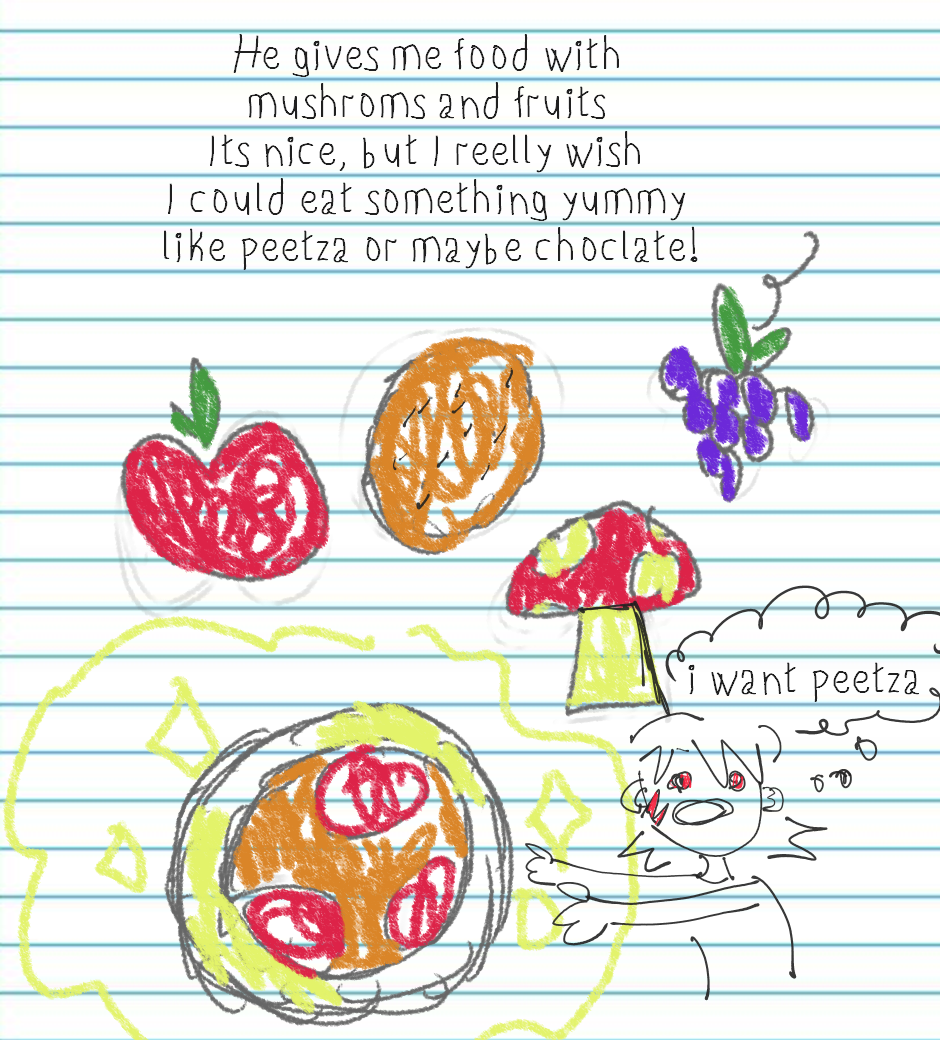 He gives me food with
mushroms and fruits
Its nice, but I reelly wish
I could eat something yummy
like peetza or maybe choclate!
i want peetza